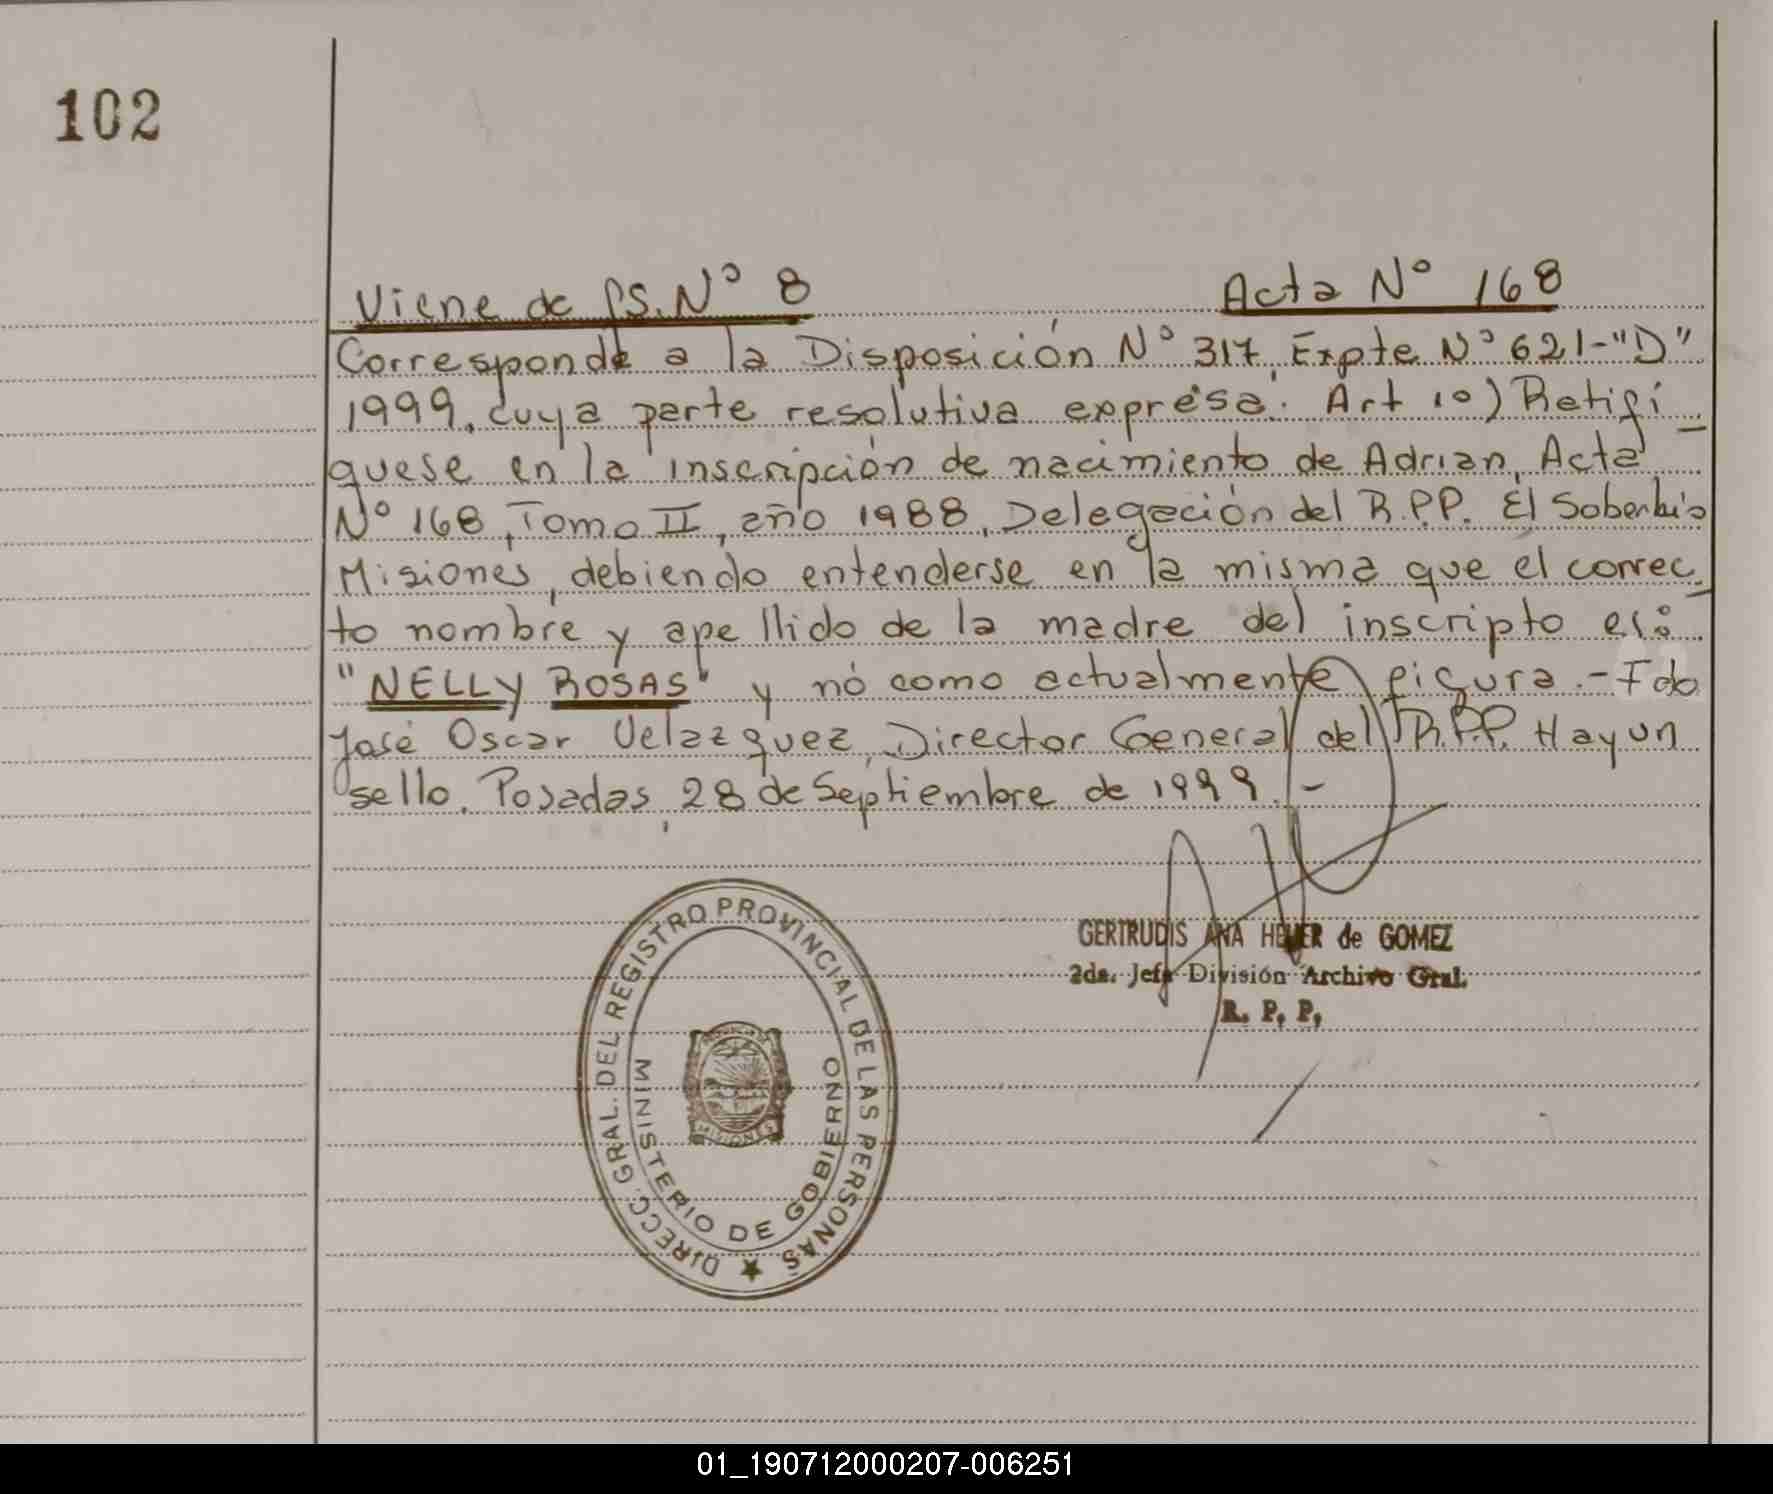 102
Viene de fs. Nº 8 Acta Nº 168
Corresponde a la Disposición Nº 317, Expte Nº 621-"D"
1999, cuya parte resolutiva expresa: Art 1º) Retifi
quese en la inscripción de nacimiento de Adrian, Acta
Nº 168, Tomo II, año 1988, Delegación del R.P.P. El Soberbio
Misiones, debiendo entenderse en la misma que el correc_
to nombre y apellido de la madre del inscripto es:
"NELLY ROSAS" y nó como actualmente figura.- Fdo
José Oscar Velazquez, Director General del R.P.P. Hay un
sello. Posadas, 28 de Septiembre de 1999.-
GERTRUDIS ANA HEUER de GOMEZ
2da. Jefa División Archivo Gral.
R. P. P.
DIRECC. GRAL. DEL REGISTRO PROVINCIAL DE LAS PERSONAS
MINISTERIO DE GOBIERNO
MISIONES
01_190712000207-006251